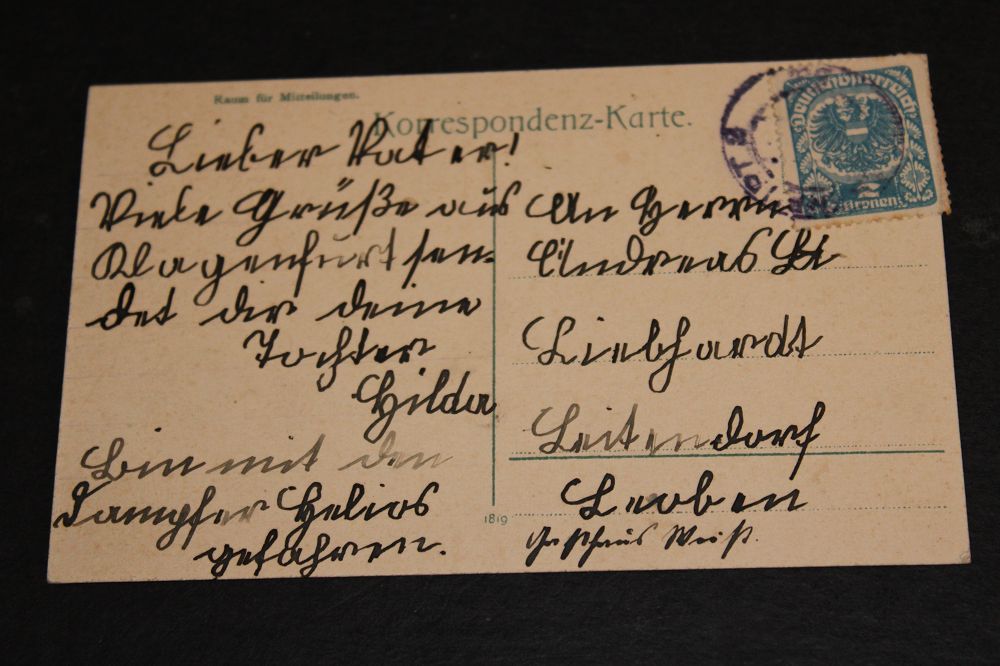 Raum für Mitteilungen.
Korrespondenz-Karte.
Lieber Vater!
Viele Grüße aus
Klagenfurt sen-
det dir deine
Tochter
Hilda
Bin mit den
Dampfer Helios
gefahren.
1819
An Herrn
Andreas
Liebhardt
Leitendorf
Leoben
Gasthaus
Deutschösterreich
2
Kronen